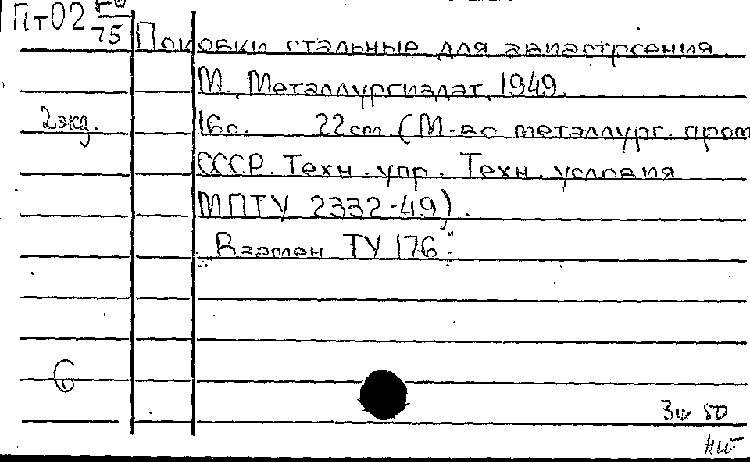 Пт02
75
Поковки стальные для авиастроения
М. Металлургиздат, 1949.
2экз.
16с. 22cm (М-во металлург. пром
СССР. Техн. упр. Техн. условия
МПТУ 2332-49).
"Взамен ТУ 176".
6
50